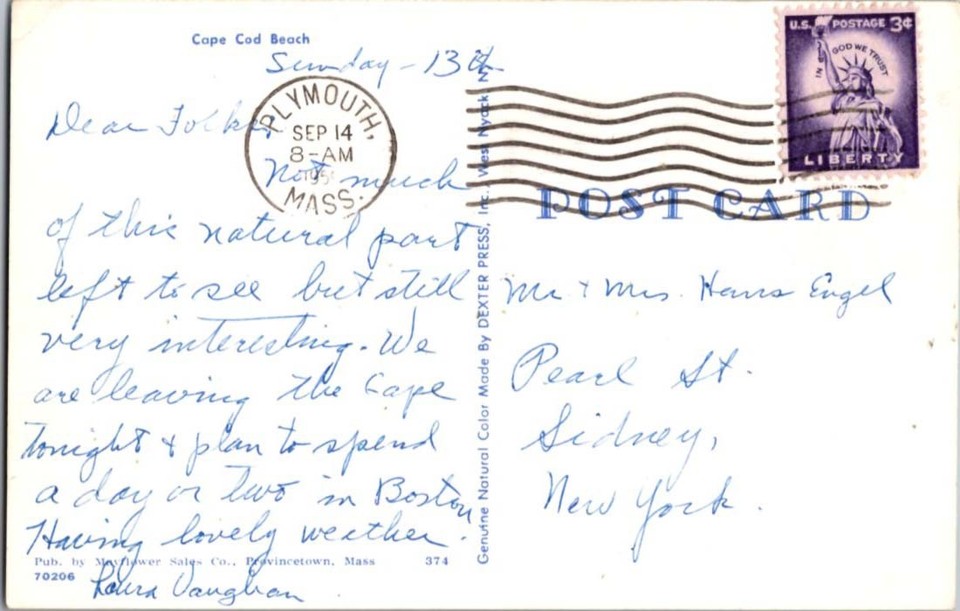 Cape Cod Beach
Sunday - 13th
Dear Folks,
Not much
of this natural part
left to see but still
very interesting. We
are leaving the Cape
tonight & plan to spend
a day or two in Boston.
Having lovely weather.
Laura Vaughan
Pub. by Mayflower Sales Co., Provincetown, Mass 374
70206
PLYMOUTH,
SEP 14
8-AM
MASS.
Genuine Natural Color Made By DEXTER PRESS, Inc., West Nyack, N
U.S. POSTAGE 3¢
IN GOD WE TRUST
LIBERTY
POST CARD
Mr & Mrs. Hans Engel
Pearl St.
Sidney,
New York.